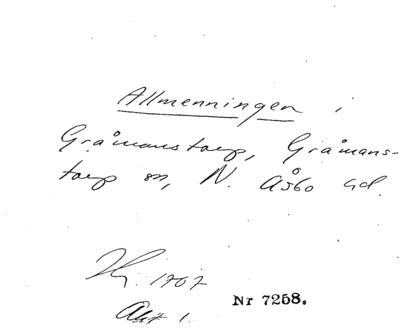 Allmenningen i
Gråmanstorp, Gråmans-
torp sn, N. Åsbo hd.
1707
Akt 1.
Nr 7258.